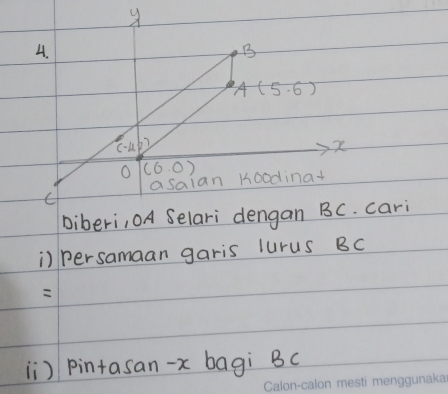 y
4.
B
A (5.6)
x
O (0.0)
asalan Koodinat
C
Diberi, OA Selari dengan BC. Cari
i) Persamaan garis lurus BC
=
ii) Pintasan-x bagi BC
Calon-calon mesti menggunaka